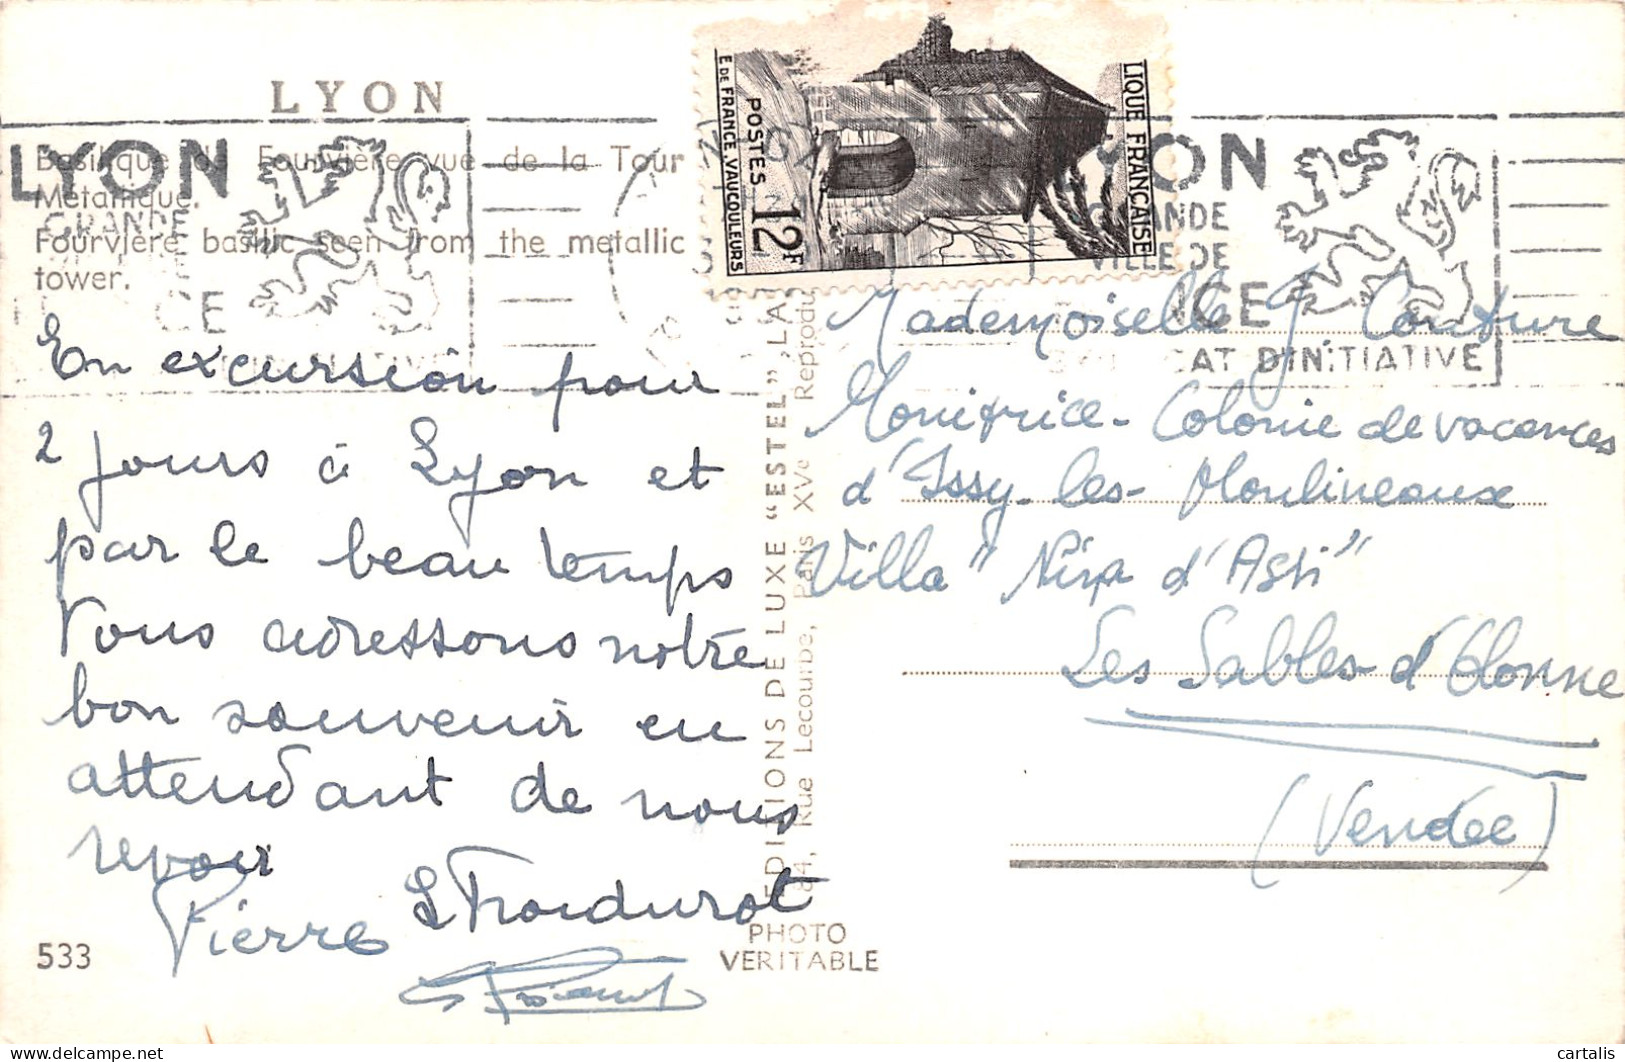 LYON
Basilique de Fourvière vue de la Tour
Métallique.
Fourvière basilic seen from the metallic
tower.
LYON
GRANDE
CE
En excursion pour
2 jours à Lyon et
par le beau temps
Vous adressons notre
bon souvenir en
attendant de nous
revoir
Pierre
L Froidurot
533
EDITIONS DE LUXE "ESTEL", LA
84, Rue Lecourbe, Paris XVe Reprodu
PHOTO
VERITABLE
LIQUE FRANÇAISE
POSTES 12F
E DE FRANCE, VAUCOULEURS
YON
GRANDE
VILLE DE
NCE
CAT D'INITIATIVE
Mademoiselle J Couture
Monitrice - Colonie de vacances
d'Issy-les-Moulineaux
Villa "Nina d'Asti"
Les Sables-d'Olonne
(Vendée)
cartalis
delcampe.net